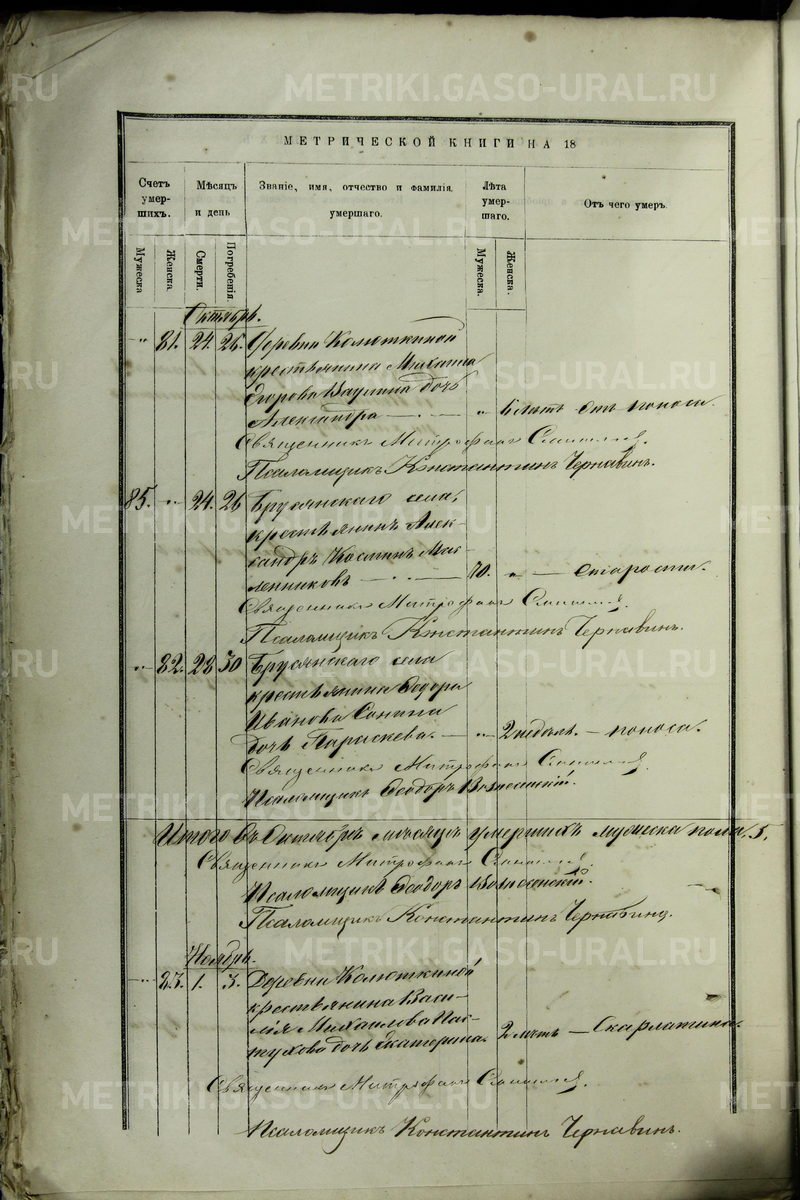 МЕТРИЧЕСКОЙ КНИГИ НА 18
Счетъ умер-шихъ.
Мѣсяцъ и день
Званіе, имя, отчество и фамилія умершаго.
Лѣта умер-шаго.
Отъ чего умеръ.
Мужеска
Женска.
Смерти.
Погребенія.
Мужеска.
Женска.
Октябрь.
" 81. 24. 26. Деревни Колюткиной
крестьянина Михаила
Егорова Ваулина дочь
Александра — " лѣтъ отъ поноса.
Священникъ Митрофанъ
Псаломщикъ Константинъ Чернавинъ.
85. " 24. 26 Бруснянскаго села,
крестьянинъ Алек-
сандръ Косминъ Мас-
ленниковъ — 70. " — Старости.
Священникъ Митрофанъ
Псаломщикъ Константинъ Чернавинъ.
" 82. 28 30 Бруснянскаго села
крестьянина Ѳеодора
Иванова Санина
дочь Параскева. — " 2 недѣль. — поноса.
Священникъ Митрофанъ
Псаломщикъ Ѳеодоръ Вознесенскій.
Итого въ Октябрѣ мѣсяцѣ умершихъ мужеска пола 5.
Священникъ Митрофанъ
Псаломщикъ Ѳеодоръ Вознесенскій.
Псаломщикъ Константинъ Чернавинъ.
Ноябрь.
" 83. 1. 3. Деревни Колюткиной
крестьянина Васи-
лія Михаилова Пас-
тухова дочь Екатерина. 2 лѣтъ — Скарлатина.
Священникъ Митрофанъ
Псаломщикъ Константинъ Чернавинъ.
METRIKI.GASO-URAL.RU